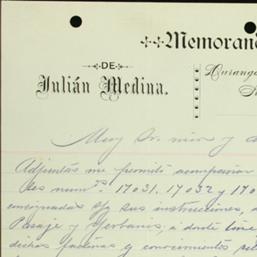 Memorand
DE
Julián Medina.
Durang
Muy Sr. mio y a
Adjuntas me permito acompañar
les numos. 17031. 17032 y 170
consignadas s/ sus instrucciones,
Pasaje y Yerbanis, a donde
dichas facturas y conocimientos